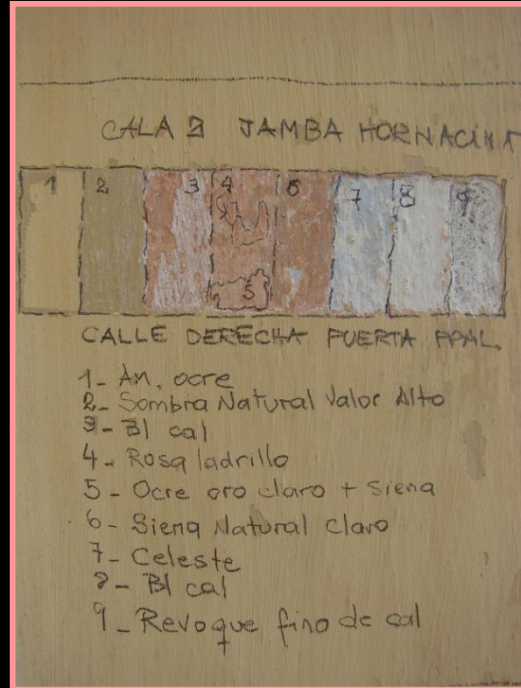 CALA 2 JAMBA HORNACINA
1 2 3 4 6 7 8 9
5
CALLE DERECHA PUERTA PPAL.
1- Am. ocre
2- Sombra Natural Valor Alto
3- Bl cal
4- Rosa ladrillo
5- Ocre oro claro + Siena
6- Siena Natural claro
7- Celeste
8- Bl cal
9- Revoque fino de cal